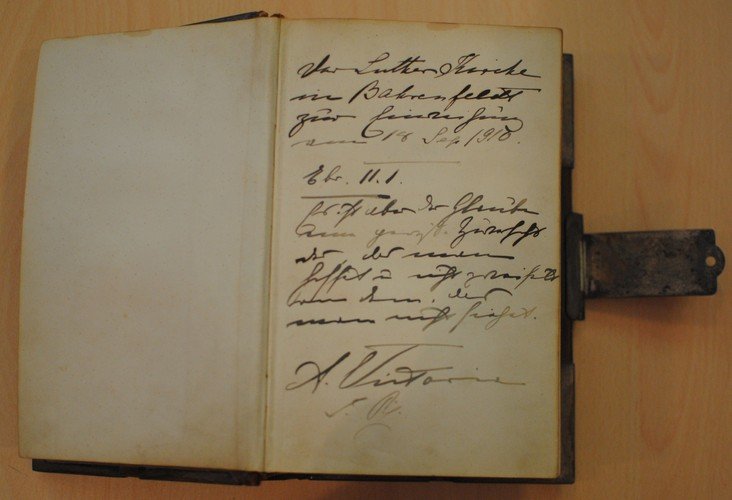 Der Luther Kirche
in Bahrenfeldt
zur Einweihung
am 18 Sep 1910.
Ebr. 11.1.
Es ist aber der Glaube
eine gewiße Zuversicht
der man
hoffet u nicht zweifelt
an dem, des
man nicht siehet.
A. Victoria
I. R.